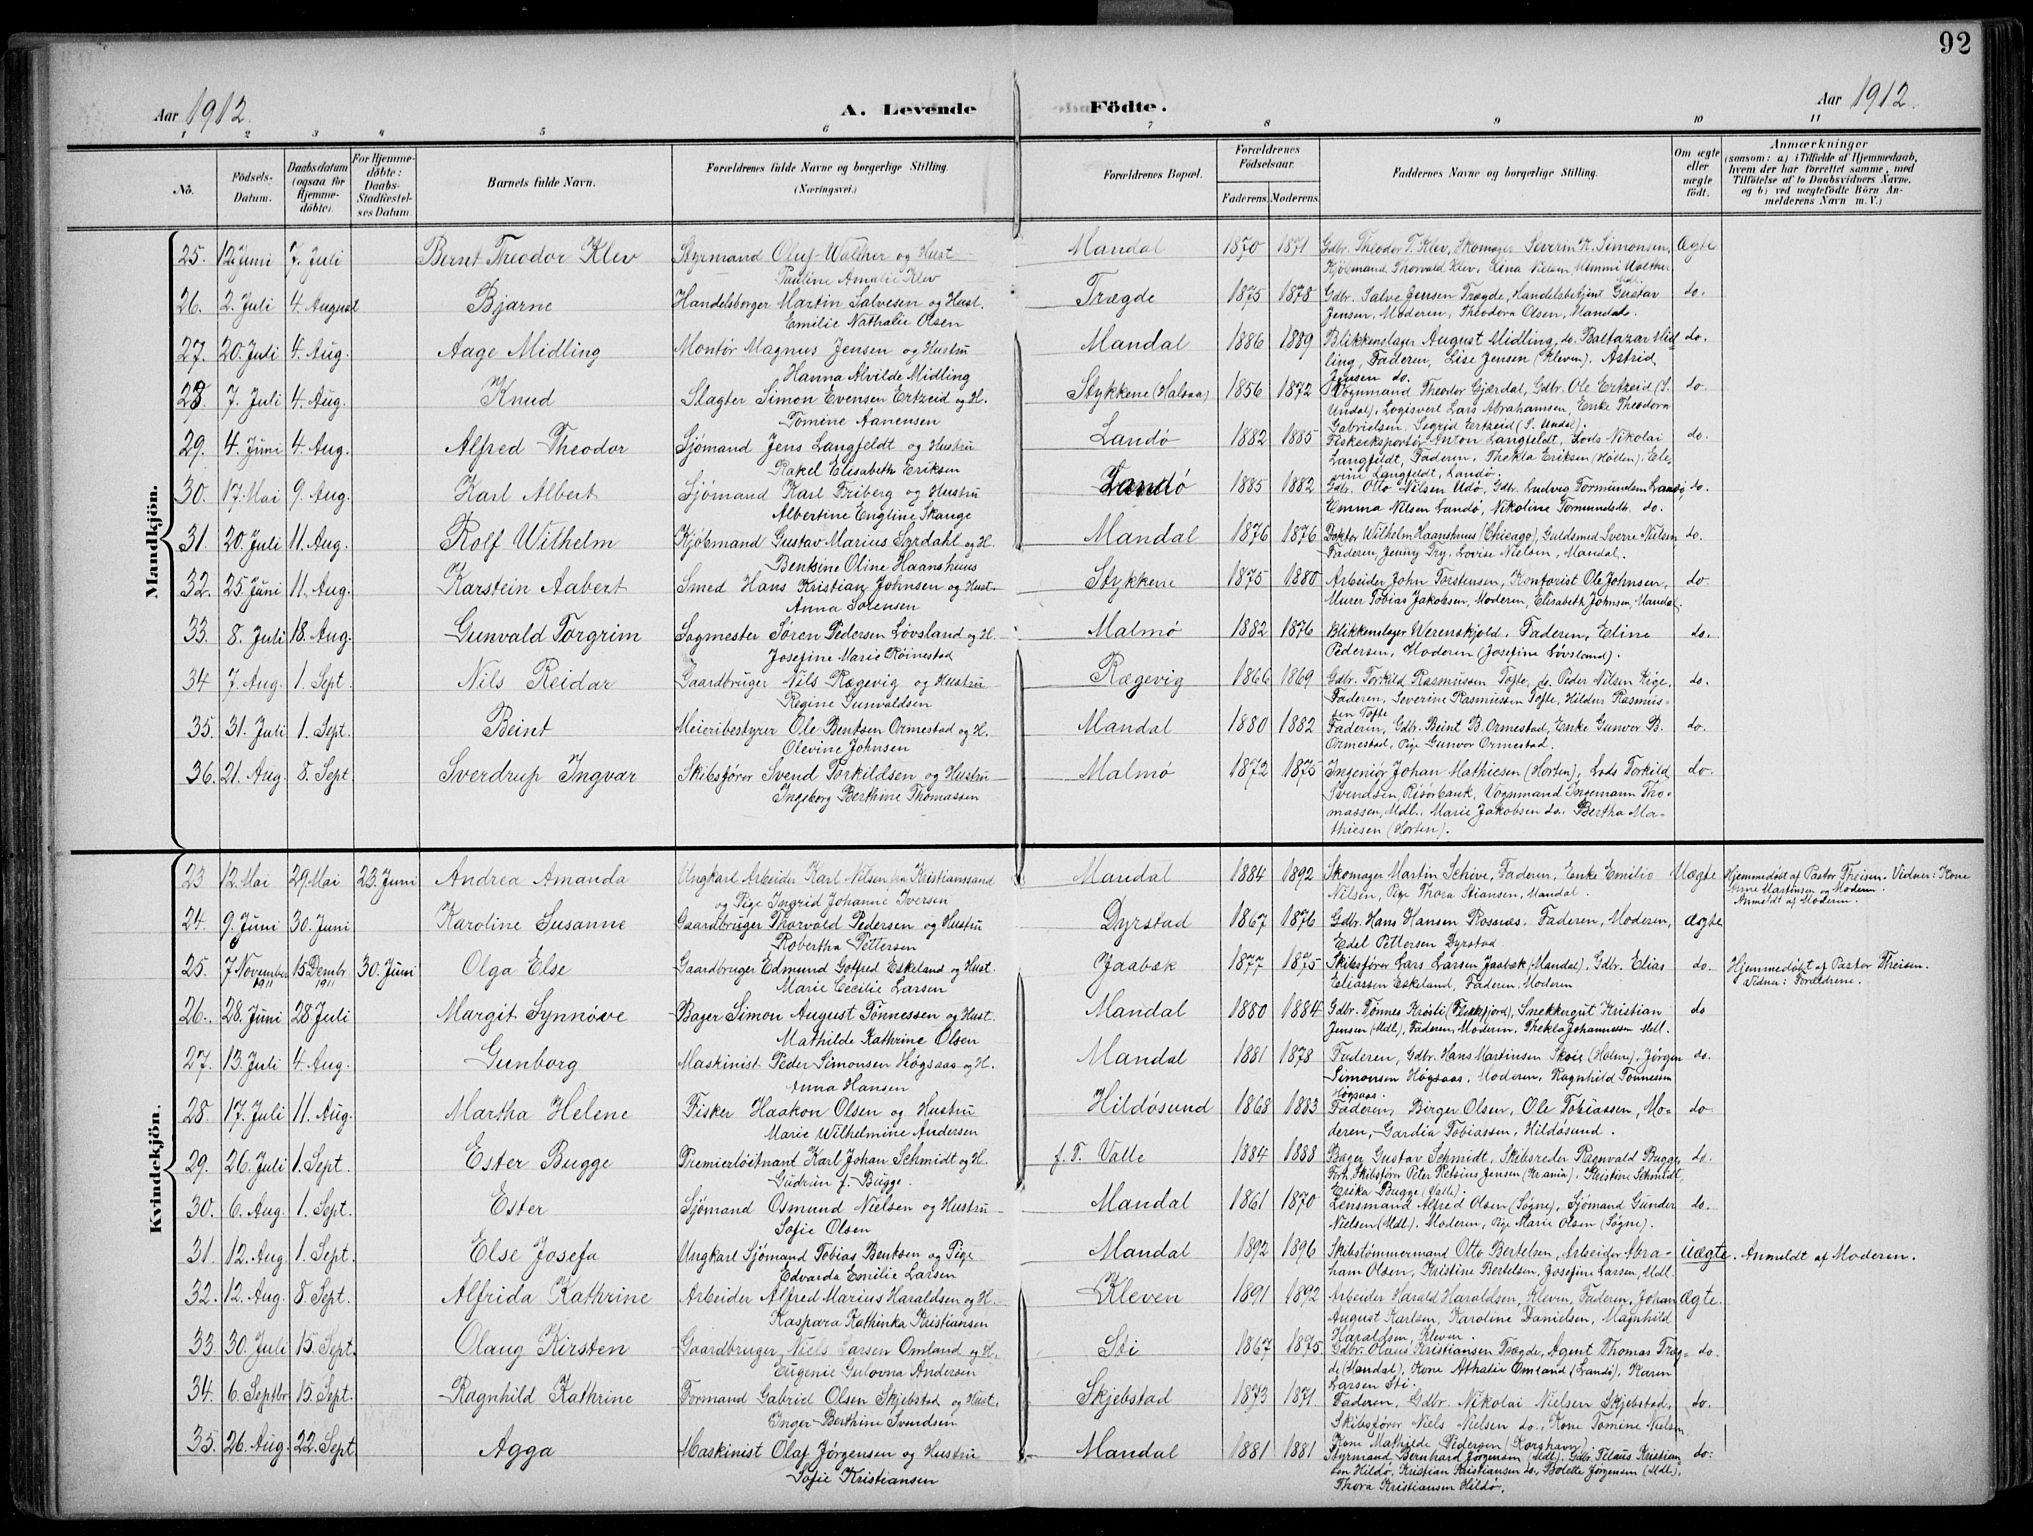 92
Aar 1912. A. Levende Födte. Aar 1912.
1 2 3 4 5 6 7 8 9 10 11
No. Födsels-Datum. Daabsdatum (ogsaa for Hjemme-döbte). For Hjemme-döbte: Daabs-Stadfæstel-ses Datum Barnets fulde Navn. Forældrenes fulde Navne og borgerlige Stilling. (Næringsvei.) Forældrenes Bopæl. Forældrenes Födselsaar. Faderens. Moderens. Faddernes Navne og borgerlige Stilling. Om ægte eller uægte födt. Anmærkninger (saasom: a) i Tilfælde af Hjemmedaab, hvem der har forrettet samme, med Tilföielse af to Daabsvidners Navne, og b) ved uægtefödte Börn An-melderens Navn m. V.)
Mandkjön.
25. 12 Juni 7. Juli Bernt Theodor Klev Styrmand Oluf Walther og Hust. Mandal 1870 1871 Gdbr. Theodor T. Klev, Skomager Severin K. Simonsen, Ægte
Pauline Amalie Klev Kjöbmand Thorvald Klev, Lina Nielsen, Mimmi Walther
26. 2. Juli 4. August Bjarne Handelsborger Martin Salvesen og Hust. Trægde 1875 1878 Gdbr. Salve Jensen Trægde, Handelsbetjent Gustav do.
Emilie Nathalie Olsen Jensen, Moderen, Theodora Olsen, Mandal.
27. 20. Juli 4. Aug. Aage Midling Montør Magnus Jensen og Hustru Mandal 1886 1889 Blikkenslager August Midling, do. Baltazar Mid- do.
Hanna Alvilde Midling ling, Faderen, Lise Jensen (Kleven). Astrid
Jensen do.
28. 7. Juli 4. Aug. Knud Slagter Simon Evensen Ertzeid og H. Stykkene (Halsaa) 1856 1872 Vognmand Theodor Gjærdal, Gdbr. Ole Ertzeid (S. do.
Tomine Aanensen Undal), Logisvert Lars Abrahamsen, Enke Theodora
Gabrielsen. Sigrid Ertzeid (S. Undal).
29. 4. Juni 4. Aug. Alfred Theodor Sjömand Jens Langfeldt og Hustru Landö 1882 1885 Fiskeeksportör Anton Langfeldt, Lods Nikolai do.
Rakel Elisabeth Eriksen Langfeldt, Faderen, Thekla Eriksen (Hollen). Ele-
vine Langfeldt, Landö.
30. 17. Mai 9. Aug. Karl Albert Sjömand Karl Friberg og Hustru Landö 1885 1882 Gdbr. Otto Nilsen Udö, Gdbr. Ludvig Tormundsen Landö do.
Albertine Engline Skauge Emma Nilsen Landö, Nikoline Tormundsdt. do.
31. 20. Juli 11. Aug. Rolf Wilhelm Kjöbmand Gustav Marius Syrdahl og H. Mandal 1876 1876 Doktor Wilhelm Haanshuus (Chicago), Guldsmed Sverre Nilsen do.
Bentsine Oline Haanshuus Faderen, Jenny Try. Lovise Nielsen, Mandal.
32. 25. Juni 11. Aug. Karstein Aabert Smed Hans Kristian Johnsen og Hust. Stykkene 1875 1880 Arbeider John Torstensen, Kontorist Ole Johnsen, do
Anna Sörensen Murer Tobias Jakobsen, Moderen, Elisabeth Johnsen, Mandal.
33. 8. Juli 18. Aug. Gunvald Torgrim Sagmester Søren Pedersen Løvsland og H. Malmö 1882 1876 Blikkenslager Werenskjold. Faderen, Eline do.
Josefine Marie Röinestad Pedersen, Moderen (Josefine Løvsland).
34 7. Aug. 1. Sept. Nils Reidar Gaardbruger Nils Rægevig og Hustru Rægevig 1866 1869 Gdbr. Torkild Rasmussen Tofte, do. Peder Nilsen Kige, do.
Regine Gunvaldsen Faderen, Severine Rasmussen Tofte, Hildur Rasmus-
sen Tofte
35. 31. Juli 1. Sept. Beint Meieribestyrer Ole Bentsen Ormestad og H. Mandal 1880 1882 Faderen, Gdbr. Beint B. Ormestad, Enke Gunvor B. do.
Olevine Johnsen Ormestad, Pige Gunvor Ormestad.
36. 21. Aug. 8. Sept Sverdrup Ingvar Skibsfører Svend Torkildsen og Hustru Malmö 1872 1875 Ingeniör Johan Mathiesen (Horten), Lods Torkild do.
Ingeborg Berthine Thomassen Svendsen Risörbank, Vognmand Ingemann Tho-
massen, Mdl. Marie Jakobsen do. Bertha Ma-
thiesen (Horten).
Kvindekjön.
23 12. Mai 29. Mai 23. Juni Andrea Amanda Ungkarl Arbeider Karl Nilsen fra Kristianssand Mandal 1884 1892 Skomager Martin Schive, Faderen, Enke Emilie Uægte Hjemmedöbt af Pastor Theisen. Vidner: Kone
og Pige Ingrid Johanne Iversen Nilsen, Pige Thora Stiansen, Mandal. Anne Martinsen og Moderen.
Anmeldt af Moderen.
24. 9. Juni 30. Juni Karoline Susanne Gaardbruger Thorvald Pedersen og Hustru Dyrstad 1867 1876 Gdbr. Hans Hansen Rosnæs. Faderen, Moderen, Ægte
Robertha Pettersen Edel Pettersen Dyrstad
25. 7 November 1911 15 Decmbr. 1911 30. Juni Olga Else Gaardbruger Edmund Gotfred Eskeland og Hust. Jaabæk 1877 1875 Skibsfører Lars Larsen Jaabæk (Mandal). Gdbr. Elias do. Hjemmedöbt af Pastor Theisen.
Marie Cecilie Larsen Eliassen Eskeland, Faderen, Moderen Vidner: Forældrene.
26. 28. Juni 28 Juli Margit Synnøve Bager Simon August Tønnessen og Hust. Mandal 1880 1884 Gdbr. Tønnes Krosli (Flekkefjord), Snekkergut Kristian do
Mathilde Kathrine Olsen Jensen (Mdl), Faderen, Moderen, Thekla Johannessen Mdl.
27. 13. Juli 4. Aug. Gunborg Maskinist Peder Simonsen Høgsaas og H. Mandal 1881 1878 Faderen, Gdbr. Hans Martinsen Skoie (Holme), Jørgen do.
Anna Hansen Simonsen Høgsaas, Moderen, Ragnhild Tønnessen
Høgsaas.
28. 17. Juli 11. Aug. Martha Helene Fisker Haakon Olsen og Hustru Hildøsund 1868 1883 Faderen, Birger Olsen, Ole Tobiassen, Mo- do.
Marie Wilhelmine Andersen deren, Gardia Tobiassen, Hildøsund.
29. 26. Juli 1. Sept. Ester Bugge Premierløitnant Karl Johan Schmidt og H. f. T. Valle 1884 1888 Bager Gustav Schmidt, Skibsreder Ragnvald Bugge, do.
Gudrun f. Bugge. Forh. Skibsförer Peter Pletsius Jensen (Kr.ania). Kristine Schmidt,
Erika Bugge (Valle).
30. 6. Aug. 1. Sept. Ester Sjömand Osmund Nielsen og Hustru Mandal 1861 1870 Lensmand Alfred Olsen (Søgne), Sjömand Gunder do.
Sofie Olsen Nielsen (Mdl). Moderen, Pige Marie Olsen (Søgne).
31. 12. Aug. 1. Sept. Else Josefa Ungkarl Sjömand Tobias Bentsen og Pige Mandal 1892 1896 Skibstømmermand Otto Bertelsen, Arbeider Abra- Uægte. Anmeldt af Moderen.
Edvarda Emilie Larsen ham Olsen, Kristine Bertelsen, Josefine Larsen, Mdl.
32. 12. Aug. 8. Sept. Alfrida Kathrine Arbeider Alfred Marius Haraldsen og H. Kleven 1891 1892 Arbeider Harald Haraldsen, Kleven, Faderen, Johan Ægte.
Kaspara Kathinka Kristiansen August Karlsen, Karoline Danielsen, Magnhild
Haraldsen, Kleven.
33. 30. Juli 15. Sept. Olaug Kirsten Gaardbruger Niels Larsen Omland og H. Sti 1867 1875 Gdbr. Olaus Kristiansen Trægde, Agent Thomas Træg- do.
Eugenie Gulovna Andersen de (Mandal), Kone Athalie Omland (Landö), Karen
Larsen Sti.
34. 6. Septbr. 15. Sept. Ragnhild Kathrine Formand Gabriel Olsen Skjebstad og Hust. Skjebstad 1873 1871 Faderen, Gdbr. Nikolai Nielsen Skjebstad, do.
Inger Berthine Svendsen Skibsfører Niels Nielsen do., Kone Tomine Nielsen,
Kone Mathilde Pedersen (Korshavn)
35. 26. Aug. 22. Sept. Agga Maskinist Olaf Jørgensen og Hustru Mandal 1881 1881 Styrmand Bernhard Jørgensen (Mdl). Gdbr. Tilaus Kristian- do.
Sofie Kristiansen sen Hildö, Kristian Kristiansen do., Bolette Jørgensen (Mdl),
Thora Kristiansen Hildö.